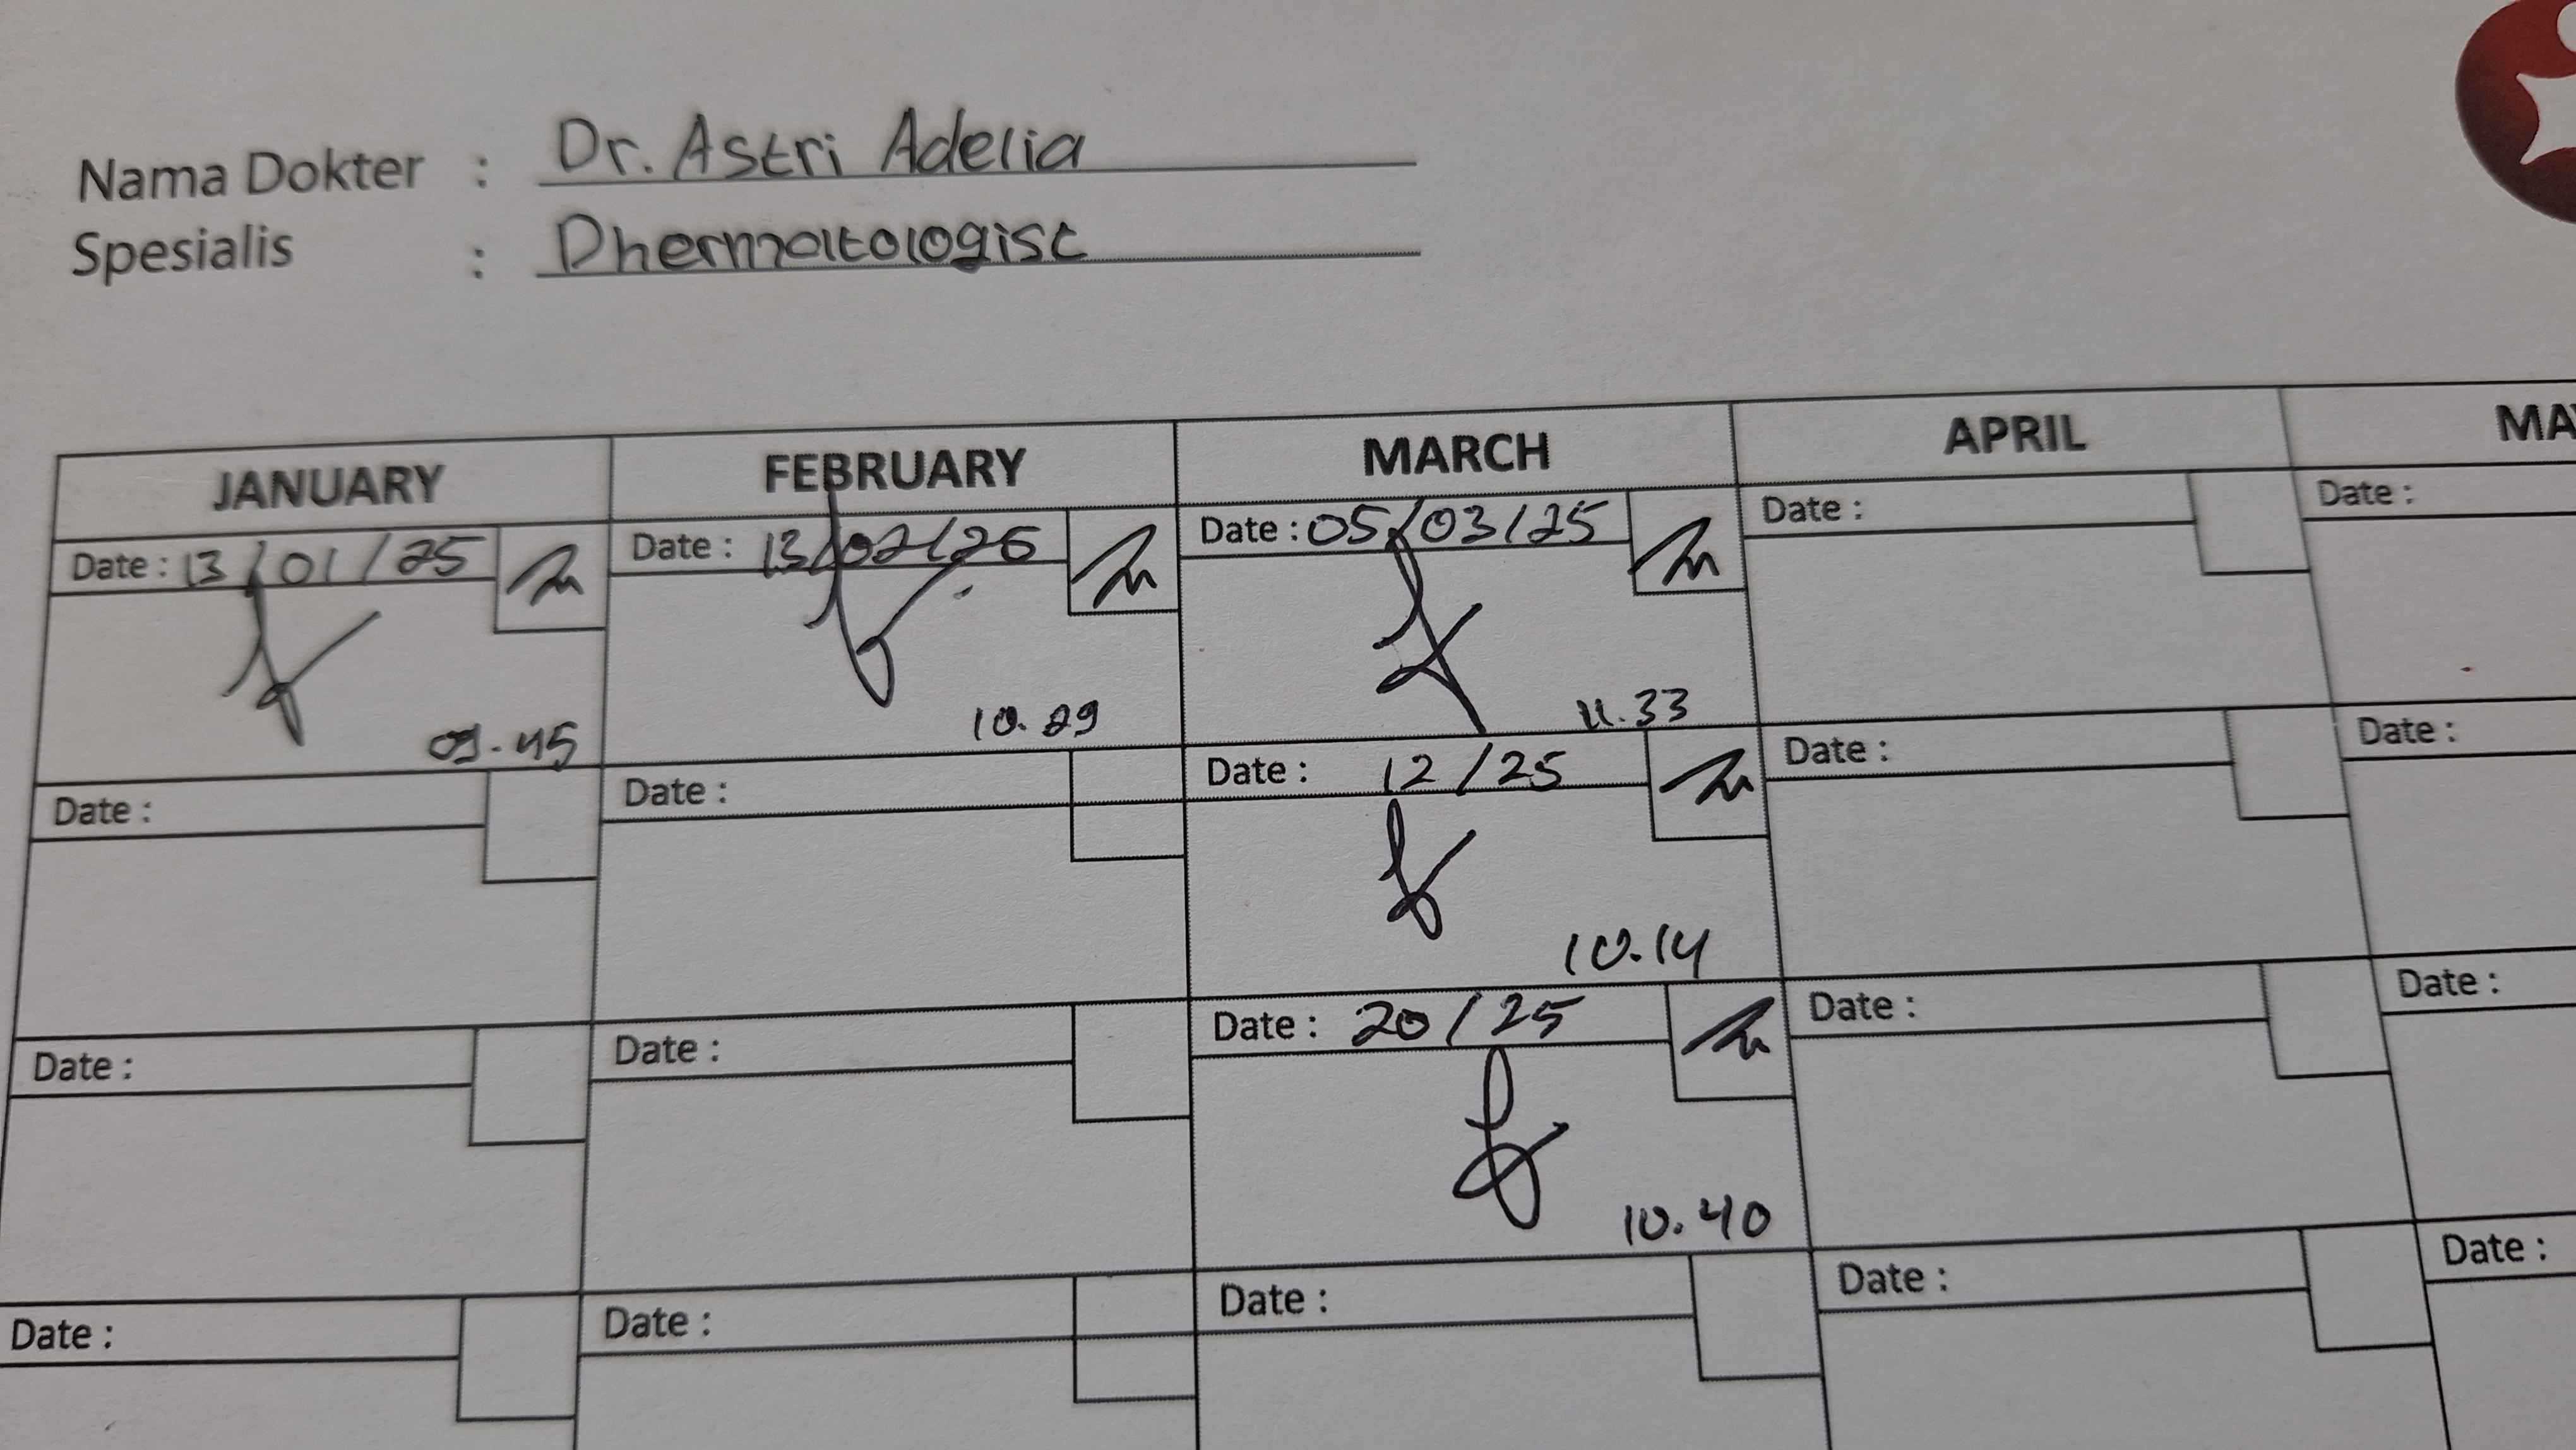 Nama Dokter : Dr. Astri Adelia
Spesialis : Dhermatologist
JANUARY FEBRUARY MARCH APRIL
Date : 13/01/25 Date : 13/02/25 Date : 05/03/25 Date : Date :
09.45 10.29 11.33
Date : Date : Date : 12/25 Date : Date :
10.14
Date : Date : Date : 20/25 Date : Date :
10.40
Date : Date : Date : Date : Date :